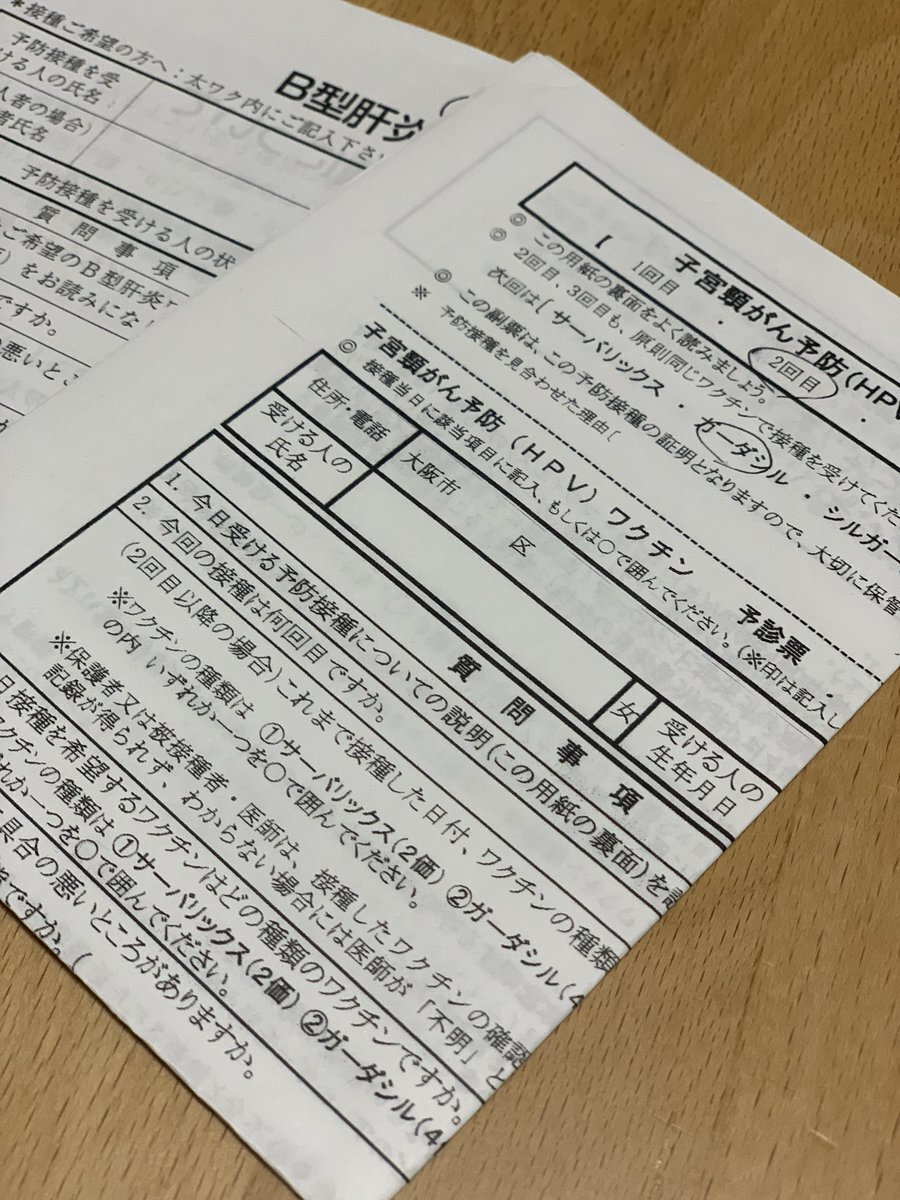 *接種ご希望の方へ:太ワク内にご記入下さ
B型肝炎
予防接種を受
ける人の氏名
人者の場合)
者氏名
予防接種を受ける人の状
質問事項
ご希望のB型肝炎
)をお読みにな
ですか。
悪いとこ
子宮頸がん予防(HPV
1回目 ・ 2回目 ・
◎ この用紙の裏面をよく読みましょう。
◎ 2回目、3回目も、原則同じワクチンで接種を受けてくだ
次回は[ サーバリックス ・ ガーダシル ・ シルガー
◎ この副票は、この予防接種の証明となりますので、大切に保管
※ 予防接種を見合わせた理由[
子宮頸がん予防(HPV)ワクチン 予診票
◎ 接種当日に該当項目に記入、もしくは○で囲んでください。(※印は記入し
住所・電話 大阪市 区
受ける人の
氏名
女
受ける人の
生年月日
質問事項
1. 今日受ける予防接種についての説明(この用紙の裏面)を
2. 今回の接種は何回目ですか。
(2回目以降の場合)これまで接種した日付、ワクチンの種類
※ワクチンの種類は ①サーバリックス(2価) ②ガーダシル(4
の内 いずれか一つを○で囲んでください。
※保護者又は被接種者・医師は、接種したワクチンの確認
記録が得られず、わからない場合には医師が「不明」と
日接種を希望するワクチンはどの種類のワクチンですか。
ワクチンの種類は ①サーバリックス(2価) ②ガーダシル(4
れか一つを○で囲んでください。
具合の悪いところがありますか。
ですか。(